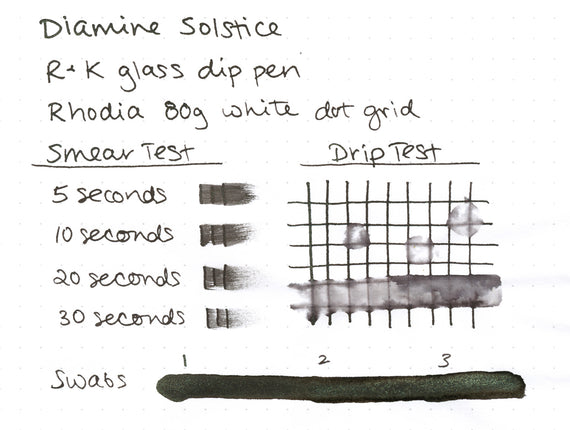 Diamine Solstice
R+K glass dip pen
Rhodia 80g white dot grid
Smear Test
Drip Test
5 seconds
10 seconds
20 seconds
30 seconds
1 2 3
Swabs